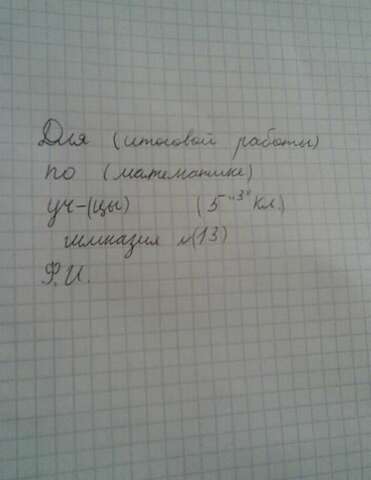 Для (итоговой работы)
по (математике)
уч-(цы) (5 "З" кл.)
гимназия №(13)
Ф.И.